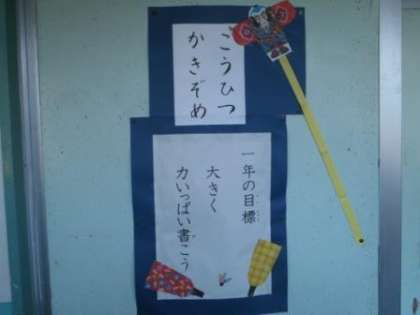 こうひつ
かきぞめ
一年の目標
大きく
力いっぱい書こう